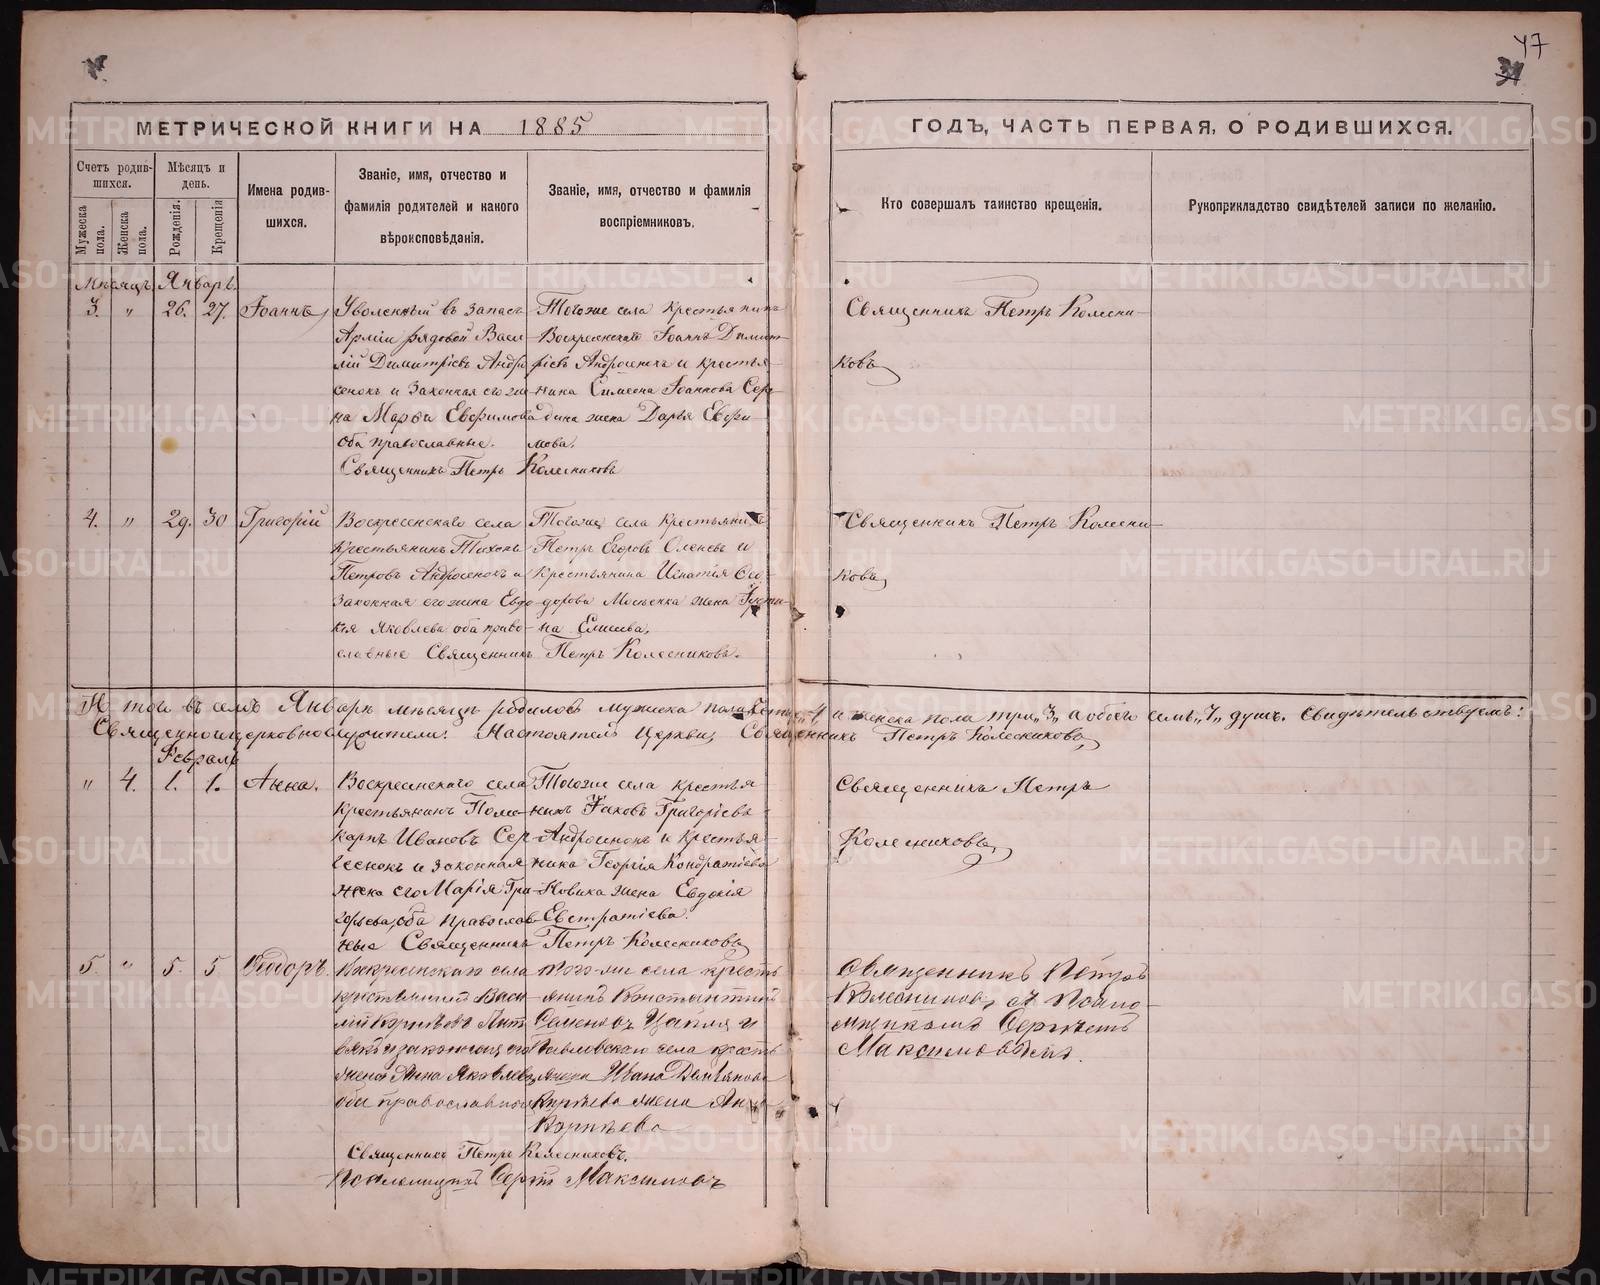 47
МЕТРИЧЕСКОЙ КНИГИ НА 1885
ГОДЪ, ЧАСТЬ ПЕРВАЯ, О РОДИВШИХСЯ.
Счетъ родив-
шихся.
Мужеска пола.
Женска пола.
Мѣсяцъ и
день.
Рожденія.
Крещенія
Имена родив-
шихся.
Званіе, имя, отчество и
фамилія родителей и какого
вѣроисповѣданія.
Званіе, имя, отчество и фамилія
воспріемниковъ.
Кто совершалъ таинство крещенія.
Рукоприкладство свидѣтелей записи по желанію.
Мѣсяцъ Январь.
3. " 26. 27. Іоаннъ
Уволенный въ запасъ
Арміи рядовой Васи-
лій Димитріевъ Андро
сенокъ и законная его же
на Марѳа Евфимова
оба православные.
Тогоже села крестьянинъ
Воскресенскаго Іоаннъ Димит-
ріевъ Андросенокъ и крестья-
нина Симеона Іоаннова Сер-
дина жена Дарья Евфи
мова.
Священникъ Петръ Колесниковъ
Священникъ Петръ Колесни-
ковъ
4. " 29. 30 Григорій
Воскресенскаго села
Крестьянинъ Тихонъ
Петровъ Андросенокъ и
законная его жена Евдо-
кія Яковлева оба право-
славные
Тогоже села крестьянинъ
Петръ Егоровъ Оленевъ и
крестьянина Игнатія Ѳео-
дорова Мосѣенка жена Іусти-
на Елисева.
Священникъ Петръ Колесниковъ.
Священникъ Петръ Колесни-
ковъ
Итого въ семъ Январѣ мѣсяцѣ родилось мужеска пола четыре "4" и женска пола три "3", а обоего семь "7" душъ. Свидѣтельствуемъ:
Священноцерковнослужители: Настоятель Церкви, Священникъ Петръ Колесниковъ
Февраль
" 4. 1. 1. Анна.
Воскресенскаго села
крестьянинъ Поли-
карпъ Ивановъ Сер-
геенокъ и законная
жена его Марія Гри-
горьева, оба православ-
ные
Тогоже села крестья
нинъ Іаковъ Григорьевъ
Андросенокъ и крестья-
нина Георгія Кондратіева
Новика жена Евдокія
Евстратіева.
Священникъ Петръ Колесниковъ
Священникъ Петръ
Колесниковъ
5. " 5. 5 Ѳеодоръ.
Воскресенскаго села
крестьянинъ Васи-
лій Корнѣевъ
и законная его
жена Анна Яковлева
оба православные
того-же села кресть
янинъ Константинъ
Семеновъ Цапля и
Павловскаго села кресть
янина Ивана Демьянова
Корнѣева жена
Корнѣева
Священникъ Петръ Колесниковъ.
Псаломщикъ Сергѣй Максимовъ
Священникъ Петръ
Колесниковъ, съ Псало-
мщикомъ Сергѣемъ
Максимовымъ.
METRIKI.GASO-URAL.RU